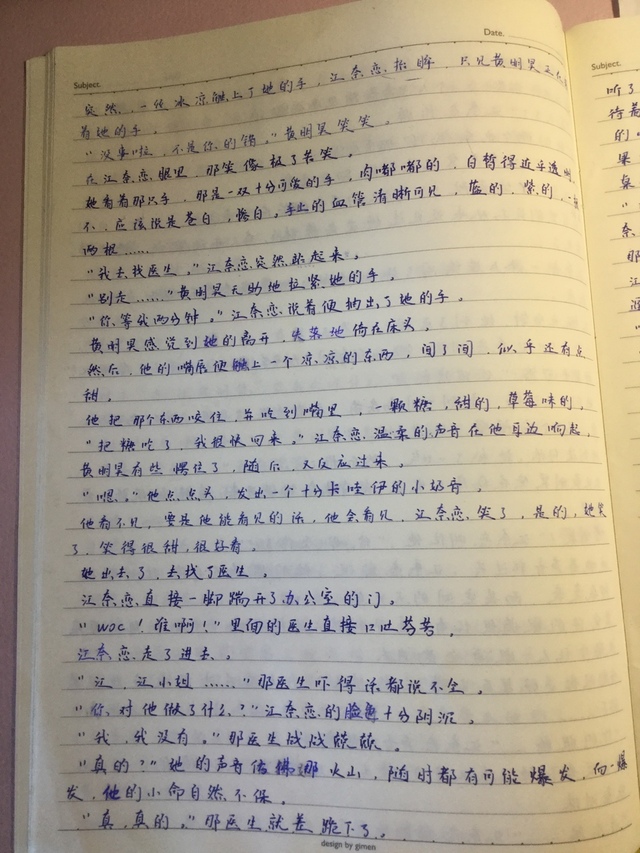 Date.
Subject.
突然，一丝冰凉触上了她的手，江奈恋抬眸，只见黄明昊正
着她的手。
“没事啦，不是你的错。”黄明昊笑笑。
在江奈恋眼里，那笑像极了苦笑。
她看着那只手，那是一双十分可爱的手，肉嘟嘟的，白皙得近乎透明，
不，应该说是苍白，惨白，手上的血管清晰可见，蓝的，紫的，一
两根……
“我去找医生。”江奈恋突然站起来。
“别走……”黄明昊无助地拉紧她的手。
“你等我两分钟。”江奈恋说着便抽出了她的手。
黄明昊感觉到她的离开，失落地倚在床头。
然后，他的嘴唇便触上一个凉凉的东西，闻了闻，似乎还有点
甜。
他把那个东西咬住，并吃到嘴里，一颗糖，甜的，草莓味的。
“把糖吃了，我很快回来。”江奈恋温柔的声音在他耳边响起，
黄明昊有些愣住了，随后，又反应过来。
“嗯。”他点点头，发出一个十分卡哇伊的小奶音。
他看不见，要是他能看见的话，他会看见，江奈恋笑了，是的，她笑
了，笑得很甜，很好看。
她出去了，去找了医生。
江奈恋直接一脚踹开了办公室的门。
“woc！谁啊！”里面的医生直接口吐芬芳。
江奈恋走了进去。
“江，江小姐……”那医生吓得话都说不全。
“你对他做了什么？”江奈恋的脸色十分阴沉。
“我，我没有。”那医生战战兢兢。
“真的？”她的声音仿拂那火山，随时都有可能爆发，而一爆
发，他的小命自然不保。
“真，真的。”那医生就差跪下了。
design by gimen
Subject.
听了
待着
果
桌
“
奈
那
江